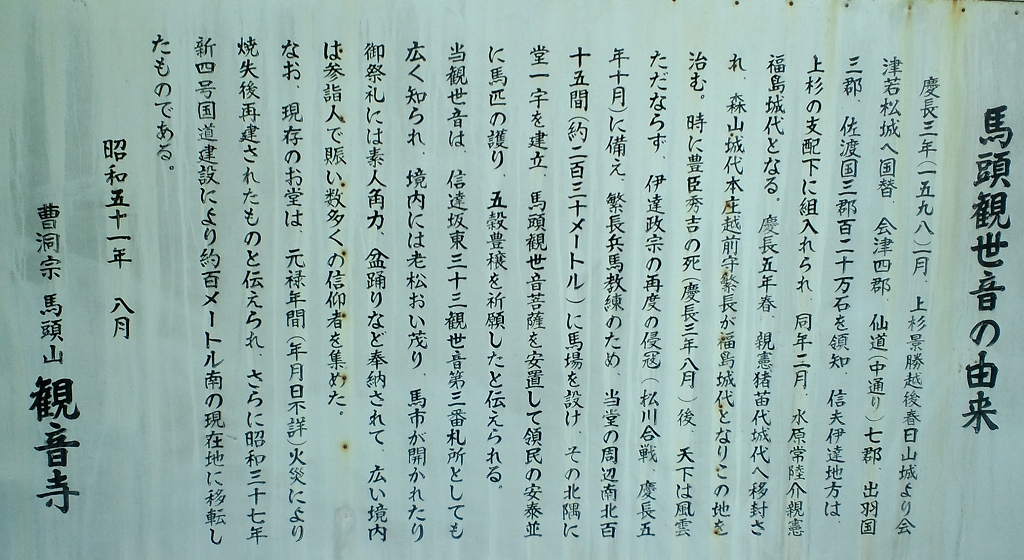 馬頭観世音の由来
慶長三年(一五九八)二月、上杉景勝越後春日山城より会
津若松城へ国替 会津四郡、仙道(中通り)七郡、出羽国
三郡、佐渡国三郡百二十万石を領知、信夫伊達地方は
上杉の支配下に組入れられ、同年二月、水原常陸介親憲
福島城代となる。慶長五年春、親憲猪苗代城代へ移封さ
れ、森山城代本庄越前守繁長が福島城代となりこの地を
治む。時に豊臣秀吉の死(慶長三年八月)後、天下は風雲
ただならず、伊達政宗の再度の侵冦(松川合戦、慶長五
年十月)に備え、繁長兵馬教練のため、当堂の周辺南北百
十五間(約二百三十メートル)に馬場を設け、その北隅に
堂一宇を建立、馬頭観世音菩薩を安置して領民の安泰並
に馬匹の護り、五穀豊穣を祈願したと伝えられる。
当観世音は、信達坂東三十三観世音第三番札所としても
広く知られ、境内には老松おい茂り、馬市が開かれたり
御祭礼には素人角力、盆踊りなど奉納されて、広い境内
は参詣人で賑い数多くの信仰者を集めた。
なお、現存のお堂は、元禄年間(年月日不詳)火災により
焼失後再建されたものと伝えられ、さらに昭和三十七年
新四号国道建設により約百メートル南の現在地に移転し
たものである。
昭和五十一年 八月
曹洞宗 馬頭山 観音寺